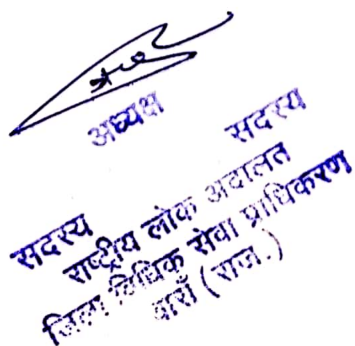 अध्यक्ष
सदस्य सदस्य
राष्ट्रीय लोक अदालत
जिला विधिक सेवा प्राधिकरण
बाराँ (राज.)